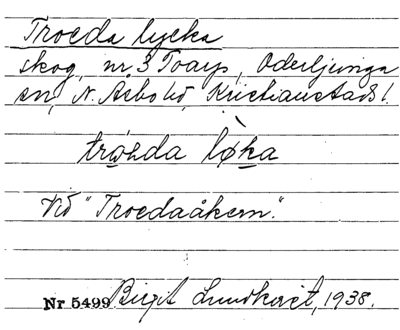 Troeda lycka
skog, nr 3 Toarp, Oderljunga
sn, N. Åsbo hd, Kristianstads l.
tròhda lø̀ka
Vid "Troedaåkern."
Nr 5499 Birgit Lundkvist, 1938.